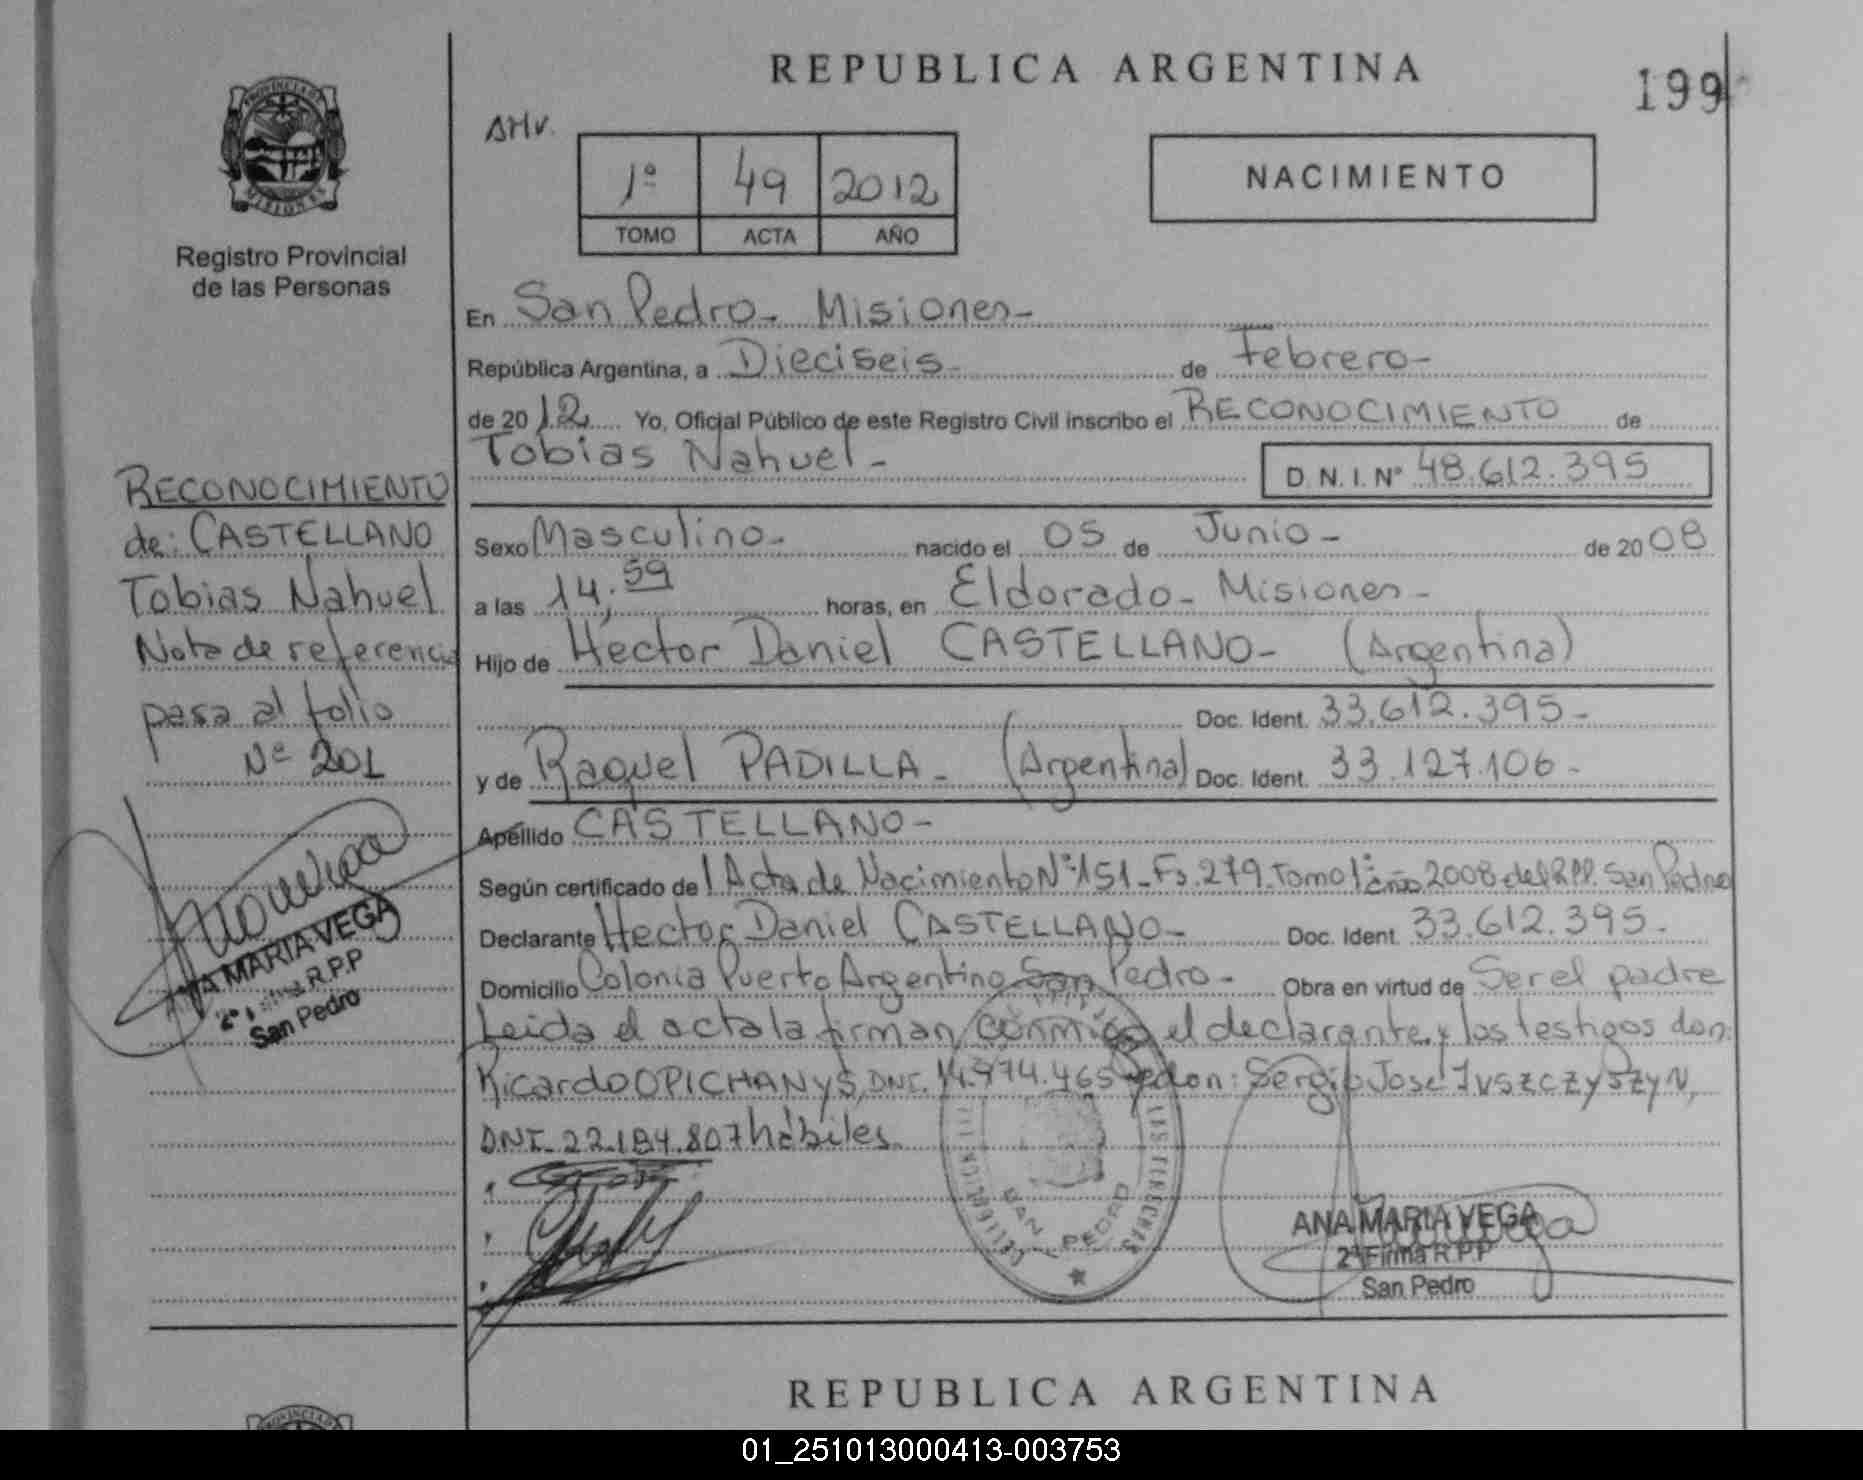 REPUBLICA ARGENTINA
199
PROVINCIA DE
MISIONES
Registro Provincial
de las Personas
1º 49 2012
TOMO ACTA AÑO
NACIMIENTO
En San Pedro - Misiones -
República Argentina, a Dieciseis - de Febrero -
de 20 12 Yo, Oficial Público de este Registro Civil inscribo el RECONOCIMIENTO de
Tobias Nahuel -
D. N. I. Nº 48.612.395
Sexo Masculino - nacido el 05 de Junio - de 20 08
a las 14,59 horas, en Eldorado - Misiones -
Hijo de Hector Daniel CASTELLANO - (Argentina)
Doc. Ident. 33.612.395 -
y de Raquel PADILLA - (Argentina) Doc. Ident. 33.127.106 -
Apellido CASTELLANO -
Según certificado de Acta de Nacimiento Nº 151 - Fº 279 - Tomo 1º año 2008 del R.P.P. San Pedro
Declarante Hector Daniel CASTELLANO - Doc. Ident. 33.612.395 -
Domicilio Colonia Puerto Argentino San Pedro - Obra en virtud de Ser el padre
Leida el acta la firman conmigo el declarante y los testigos don:
Ricardo OPICHANYS, DNI. 14.974.465 y don: Sergio Jose IVSZCZYSZYN,
DNI - 22.194.807 hábiles.
RECONOCIMIENTO
de: CASTELLANO
Tobias Nahuel
Nota de referencia
pasa al folio
Nº 201
ANA MARIA VEGA
2º Firma R.P.P
San Pedro
SAN PEDRO
ANA MARIA VEGA
2ª Firma R.P.P
San Pedro
REPUBLICA ARGENTINA
01_251013000413-003753